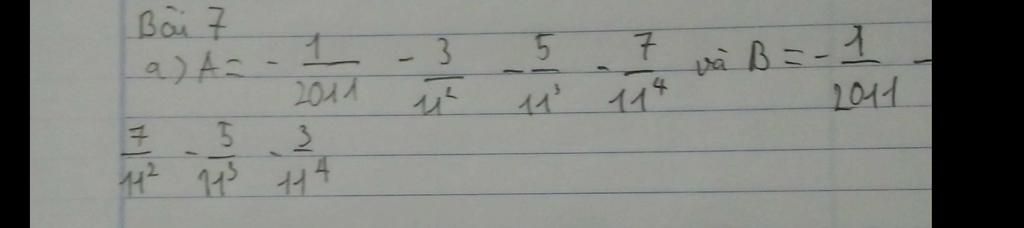 Bài 7
a) A = - 1/2011 - 3/11² - 5/11³ - 7/11⁴ và B = - 1/2011 -
7/11² - 5/11³ - 3/11⁴